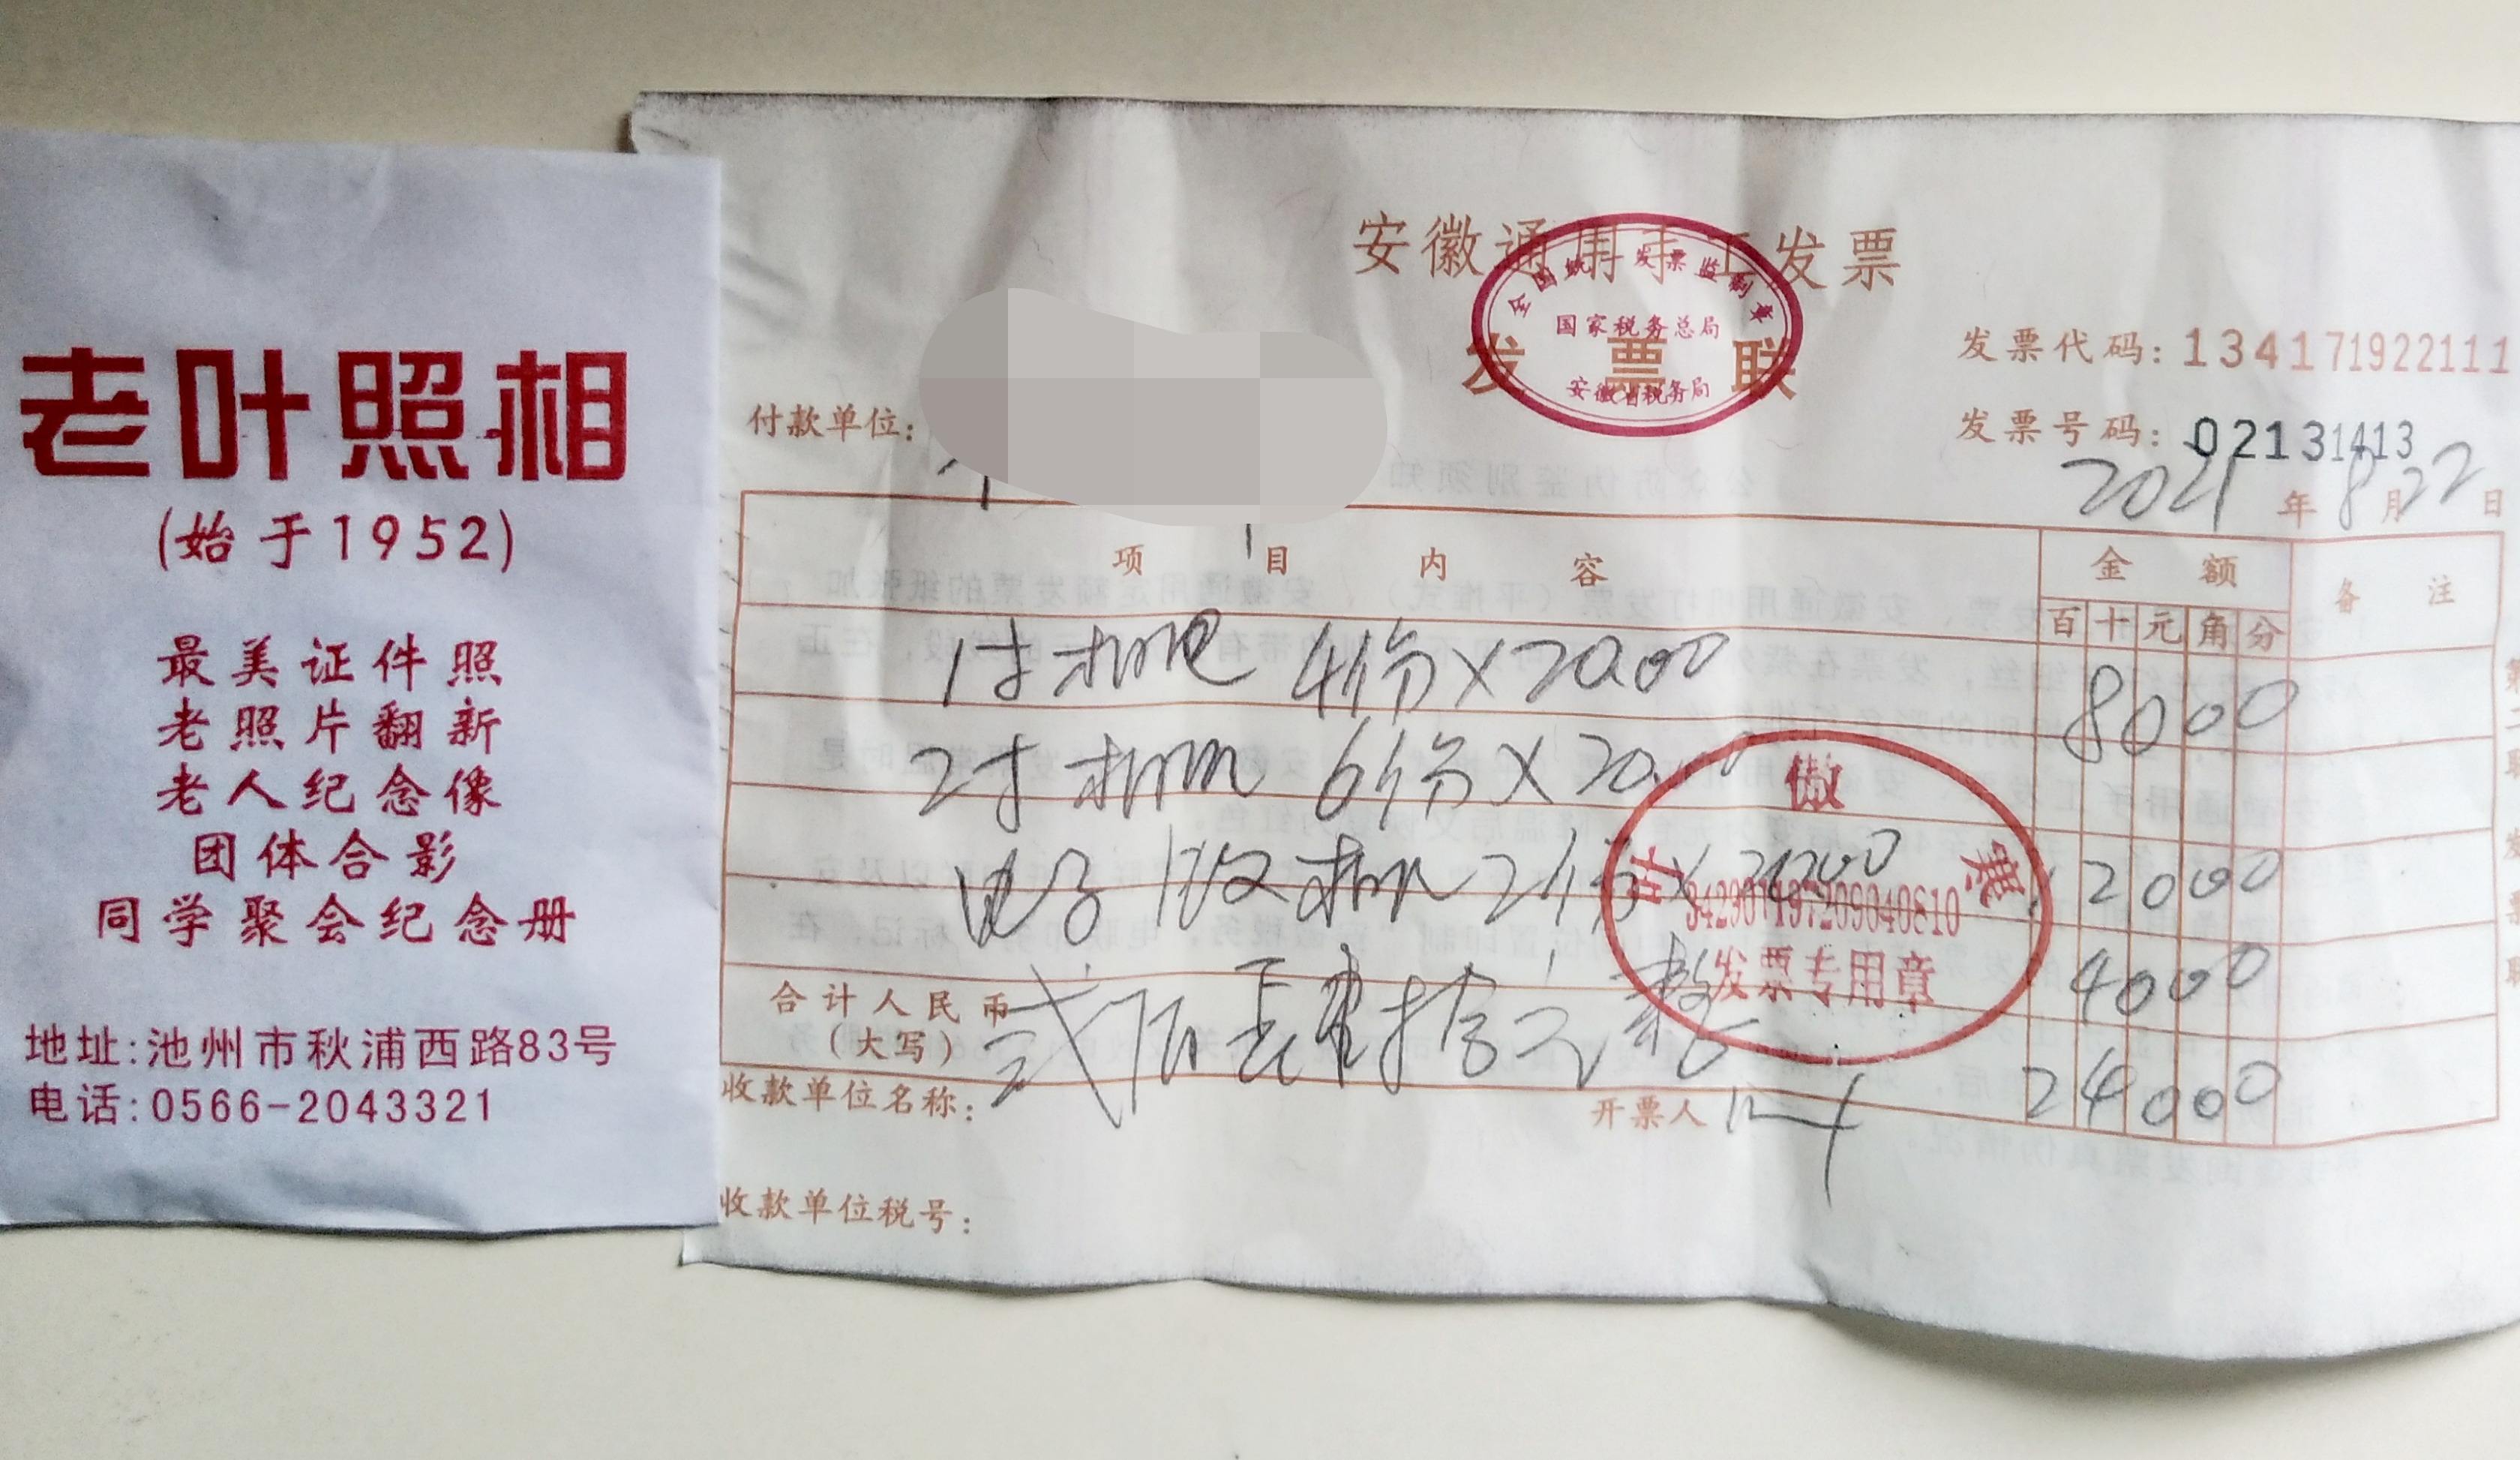 老叶照相
(始于1952)
最美证件照
老照片翻新
老人纪念像
团体合影
同学聚会纪念册
地址:池州市秋浦西路83号
电话:0566-2043321
安徽通用手工发票
发票联
全国统一发票监制章
国家税务总局
安徽省税务局
发票代码:134171922111
发票号码:02131413
付款单位:
2021年8月22日
项目内容 金额 备注
百十元角分
1寸相片 4份×20.00 8000
2寸相片 6份×20.00 12000
电子版相片 2份×20.00 4000
合计人民币
(大写) 贰佰肆拾元整 24000
傲
寒
342901197209040810
发票专用章
收款单位名称:
开票人 叶
收款单位税号: